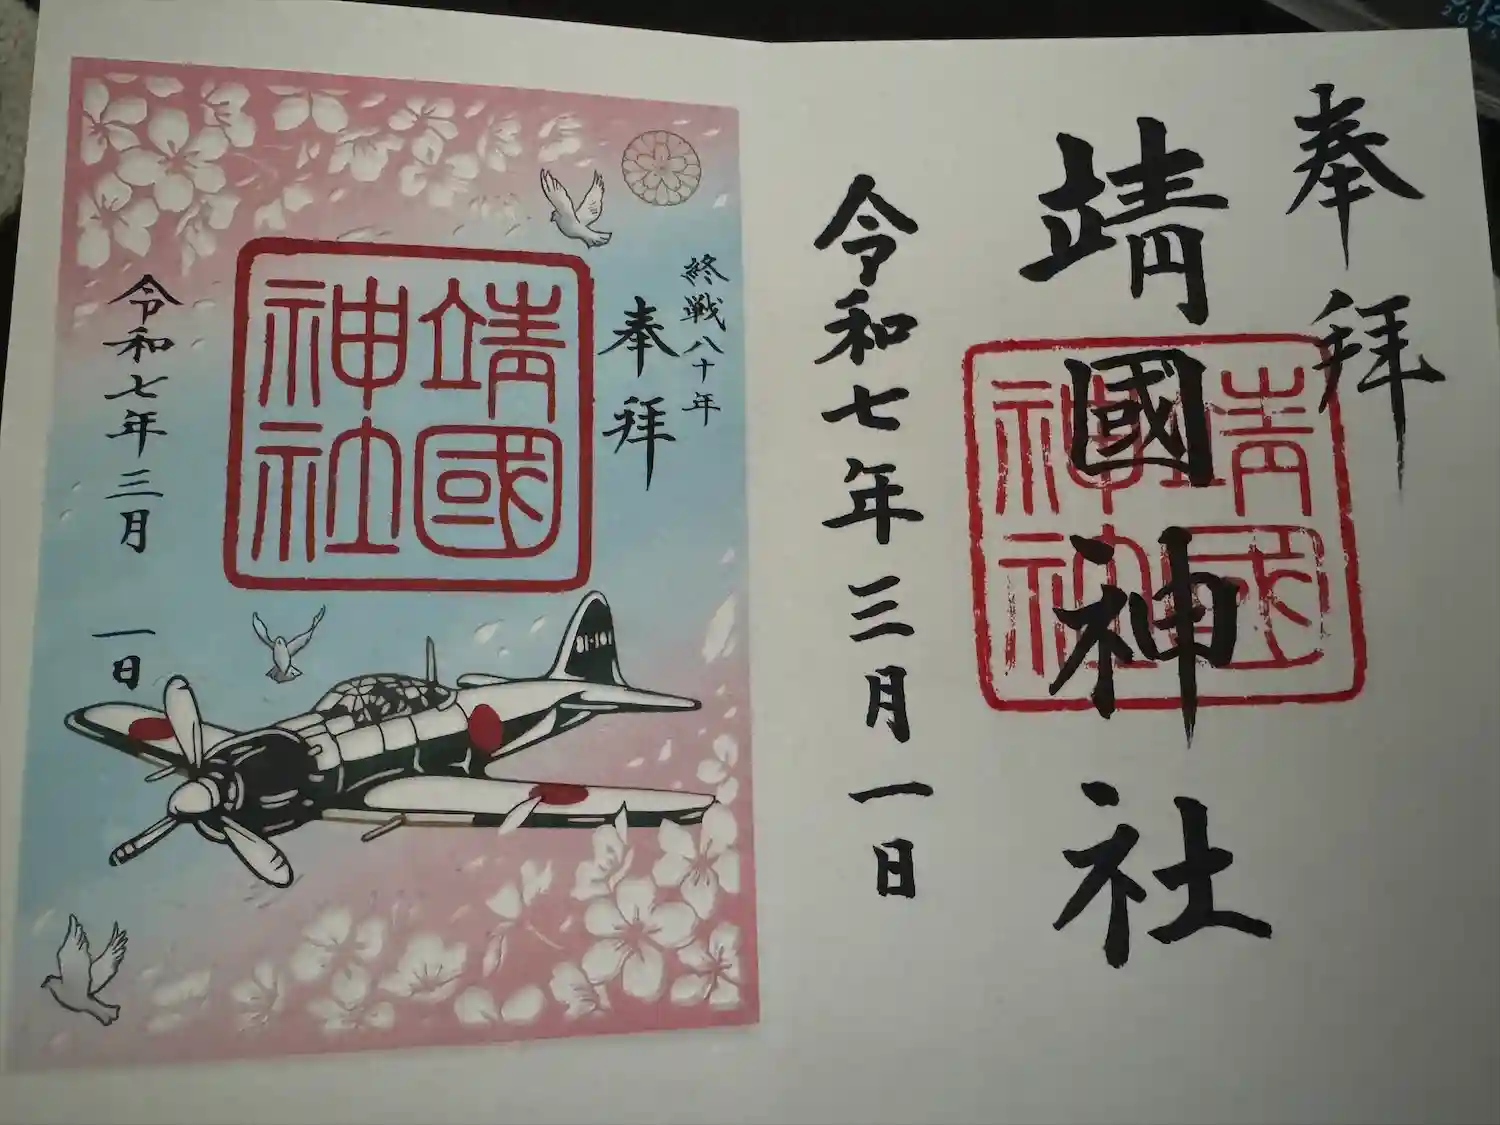 奉拝
靖國神社
靖國
神社
令和七年三月一日
終戦八十年
奉拝
靖國
神社
令和七年三月
一日